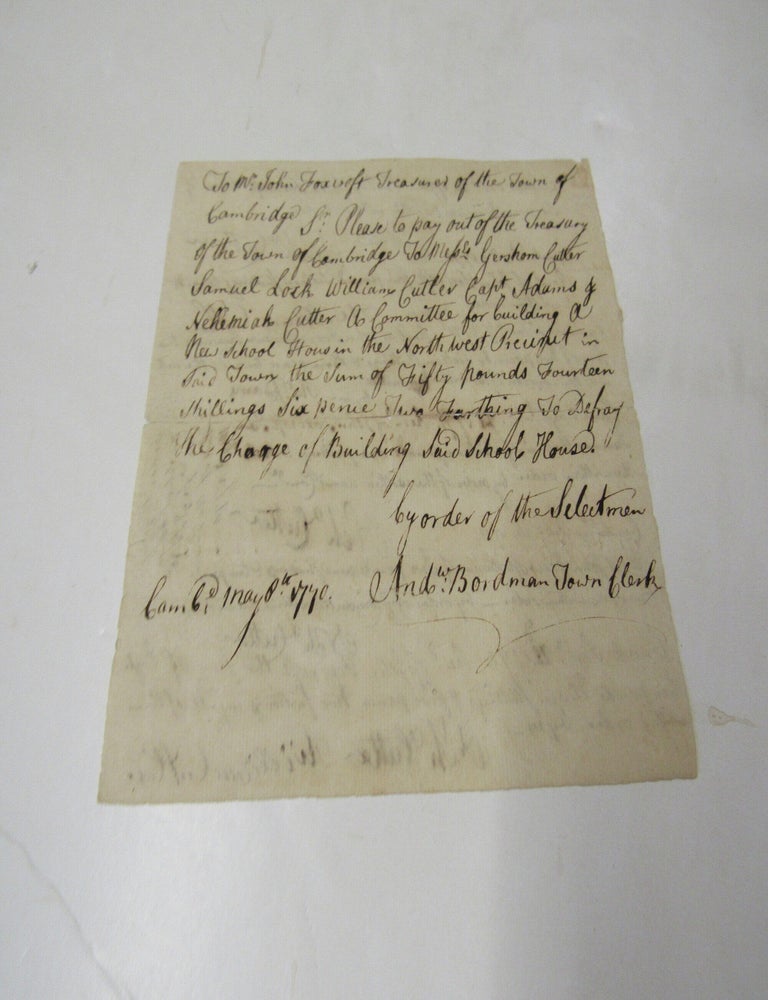 To Mr. John Foxcroft Treasurer of the Town of
Cambridge Sr. Please to pay out of the Treasury
of the Town of Cambridge To Messrs Gershom Cutter
Samuel Lock William Cutler Capt Adams &
Nehemiah Cutter A Committee for building A
New School Hous in the North west Precinct in
Said Town the Sum of Fifty pounds Fourteen
Shillings Six pence Two Farthing To Defray
the Charge of Building Said School House.
by order of the Selectmen
Camb.d May 8th 1770. Andw. Bordman Town Clerk